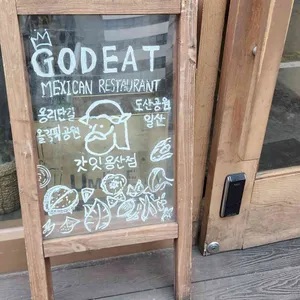 GODEAT
MEXICAN RESTAURANT
용리단길 도산공원
올림픽공원 일산
갓잇 용산점